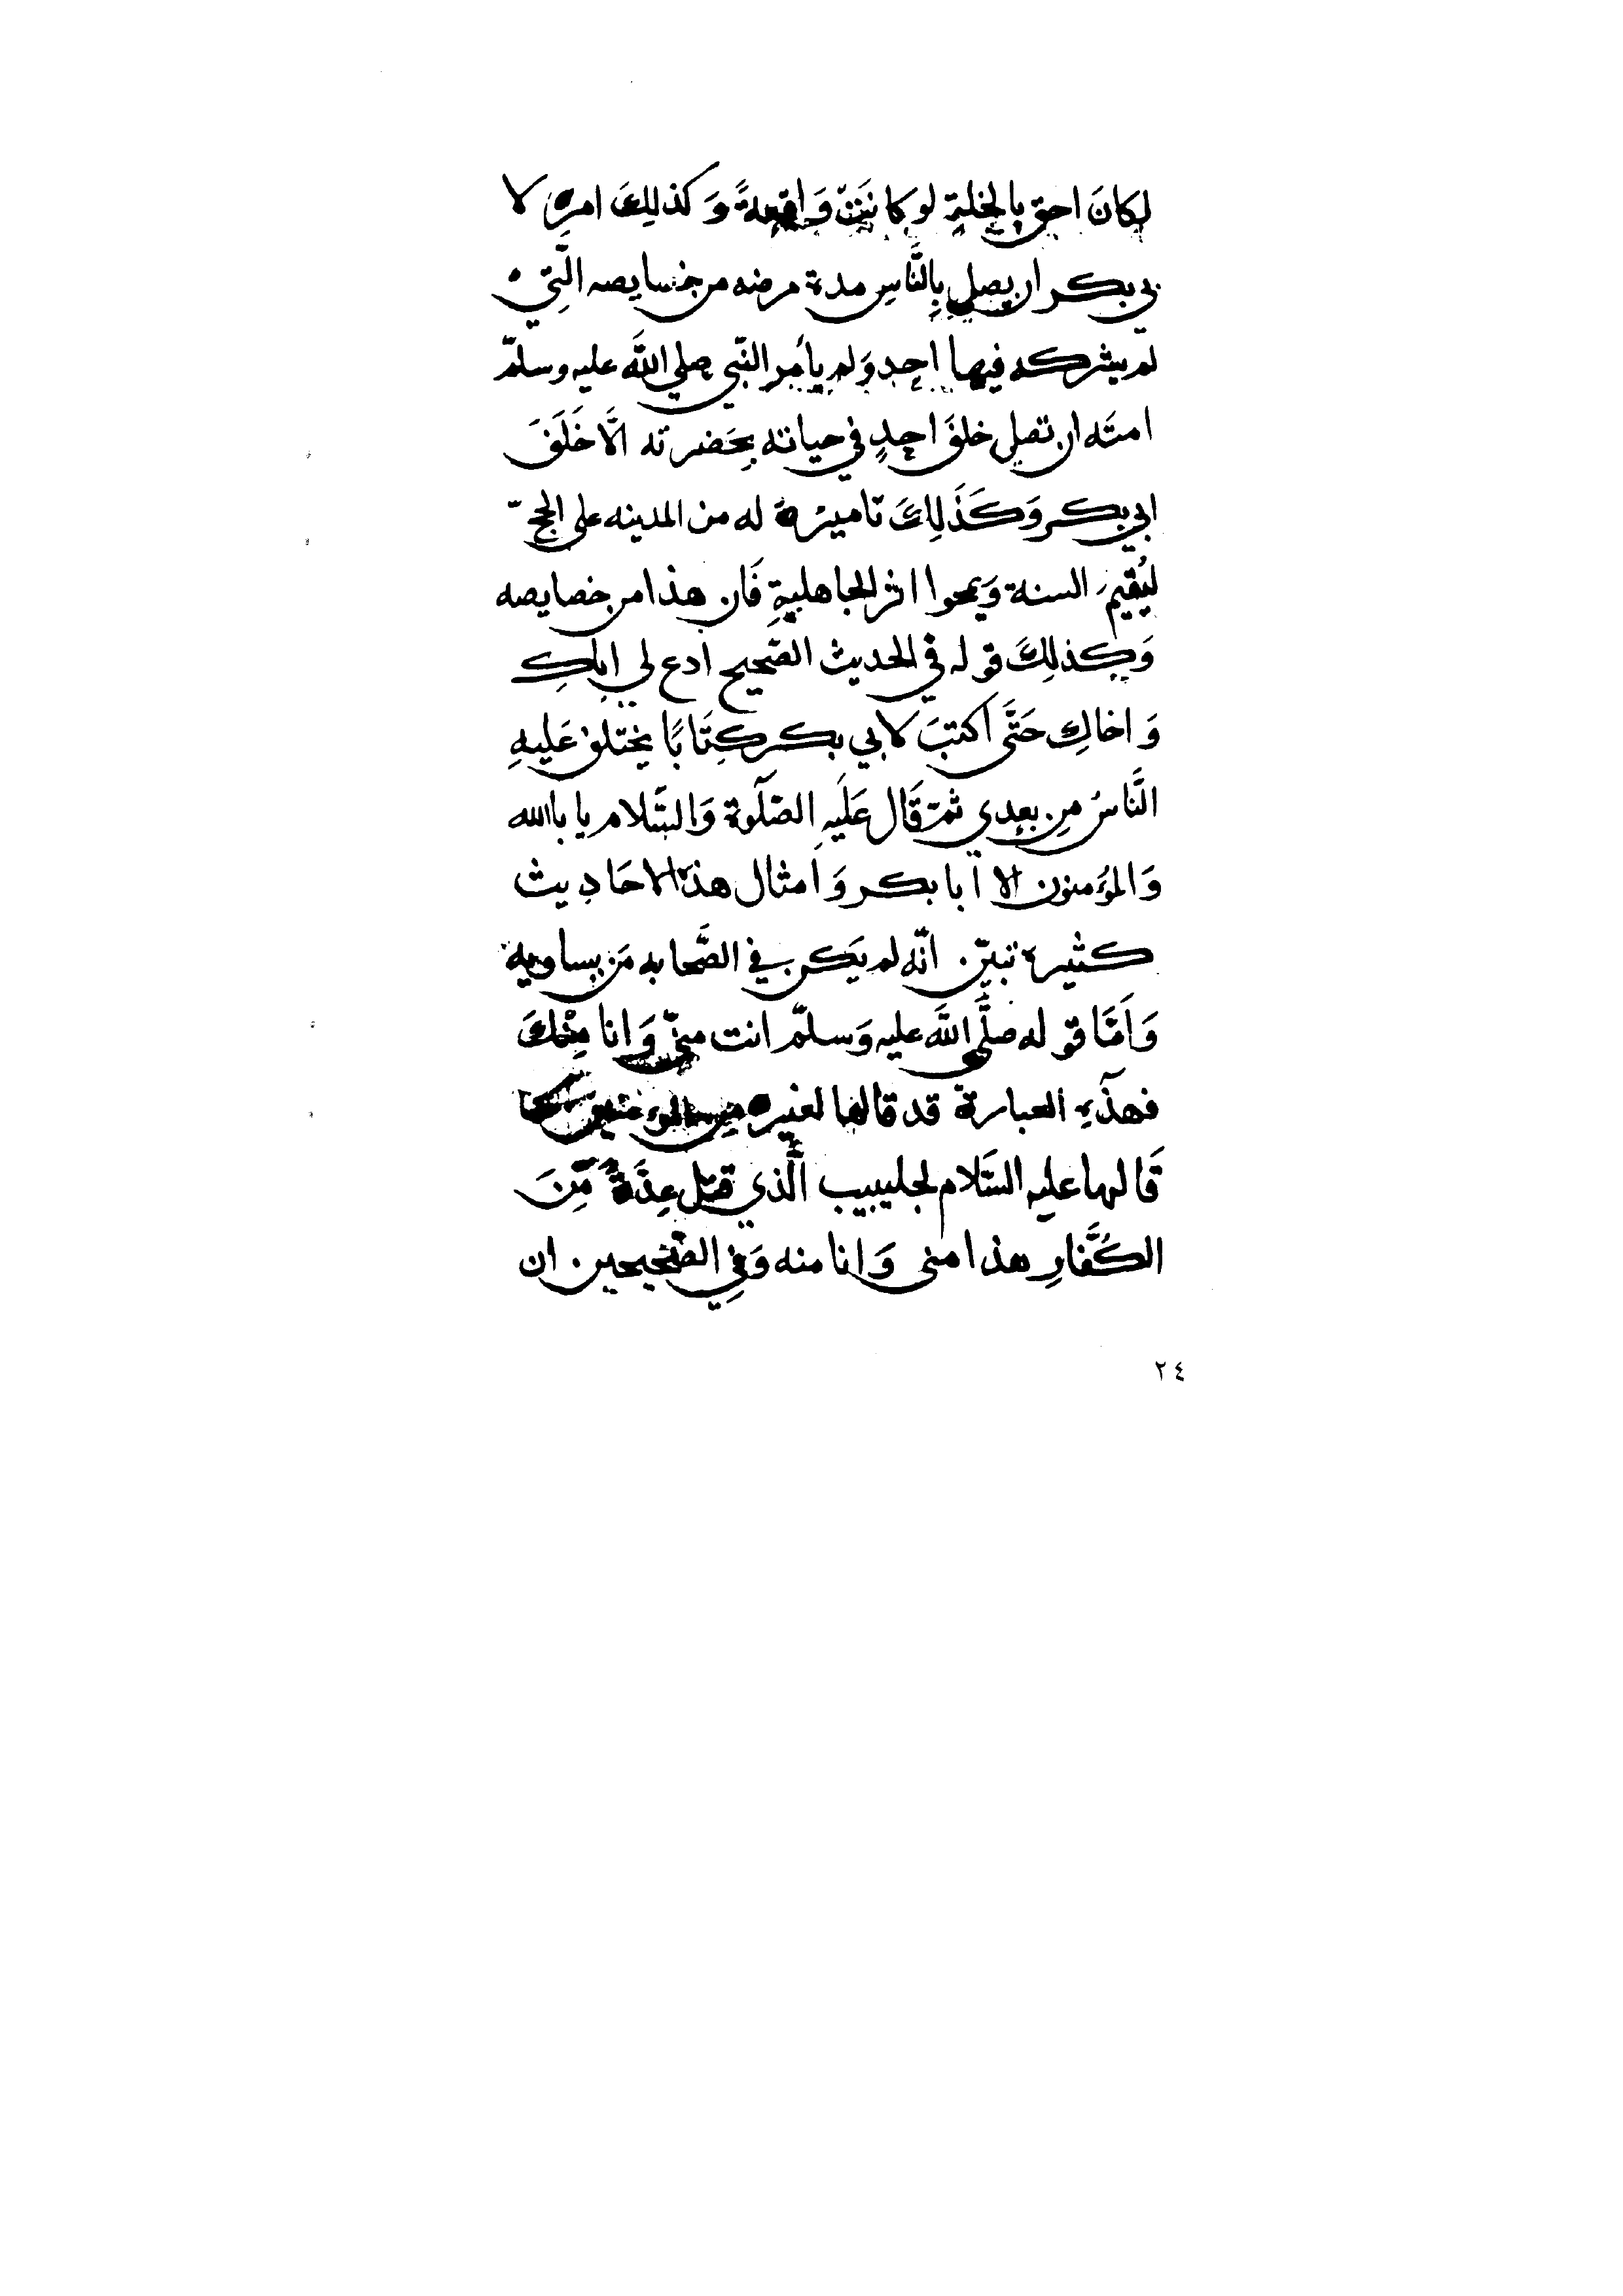 لكَانَ احق بالخلة لو كانَتْ وَاقعةً وَ كذلِكَ امره لا
بي بكر ان يصلي بِالنَّاسِ مدة مرضه من خسايصه الَّتِي
لم يشركه فيها احد وَلم يأمر النّبي صلي اللَّه عليه وسلّم
امتَه ان تصلي خلفَ احدٍ في حياته بِحَضرته الَّا خَلَفَ
ابي بكر وَكَذَلِكَ تاميرُهُ له من المدينه علي الحجّ
ليُقيم السنة وَيمحوا اثر الجاهليةِ فَان هذا من خصايصه
وَكذلِكَ قوله في الحديث الصّحيح ادع لي اباكِ
وَ اخاكِ حَتَّى اكتبَ لابي بكر كِتَابًا يختلف عَليهِ
النَّاسُ مِن بعدي ثمّ قَال عَلَيهِ الصّلٓوة وَالسّلام يابا الله
وَالمؤمنون الا أبا بكر وَامثال هذه الاحَادِيث
كثيرة تبيّن انّه لم يَكن في الصَّحابه مَن يساويه
وَاَمَّا قوله صلَّى اللَّه عليه وَسلّم انت منّي وَانا مِنْكَ
فهذٓهِ العبارة قد قالها لغيره من المؤمنين كما
قَالها عليه السَّلام لجليبيب الَّذي قتل عِدَّةً مِّنَ
الكُفَّارِ هذا مني وَانا منه وَفِي الصّحيحين ان
٢٤